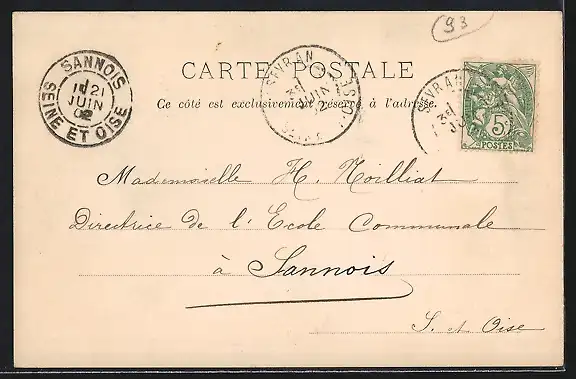 93
SANNOIS
1E 21
JUIN
02
SEINE ET OISE
CARTE POSTALE
SEVRAN
JUIN
Ce côté est exclusivement réservé à l'adresse.
SEVRAN
5c
POSTES
Mademoiselle H. Noilliat
Directrice de l'Ecole Communale
à Sannois
S. et Oise